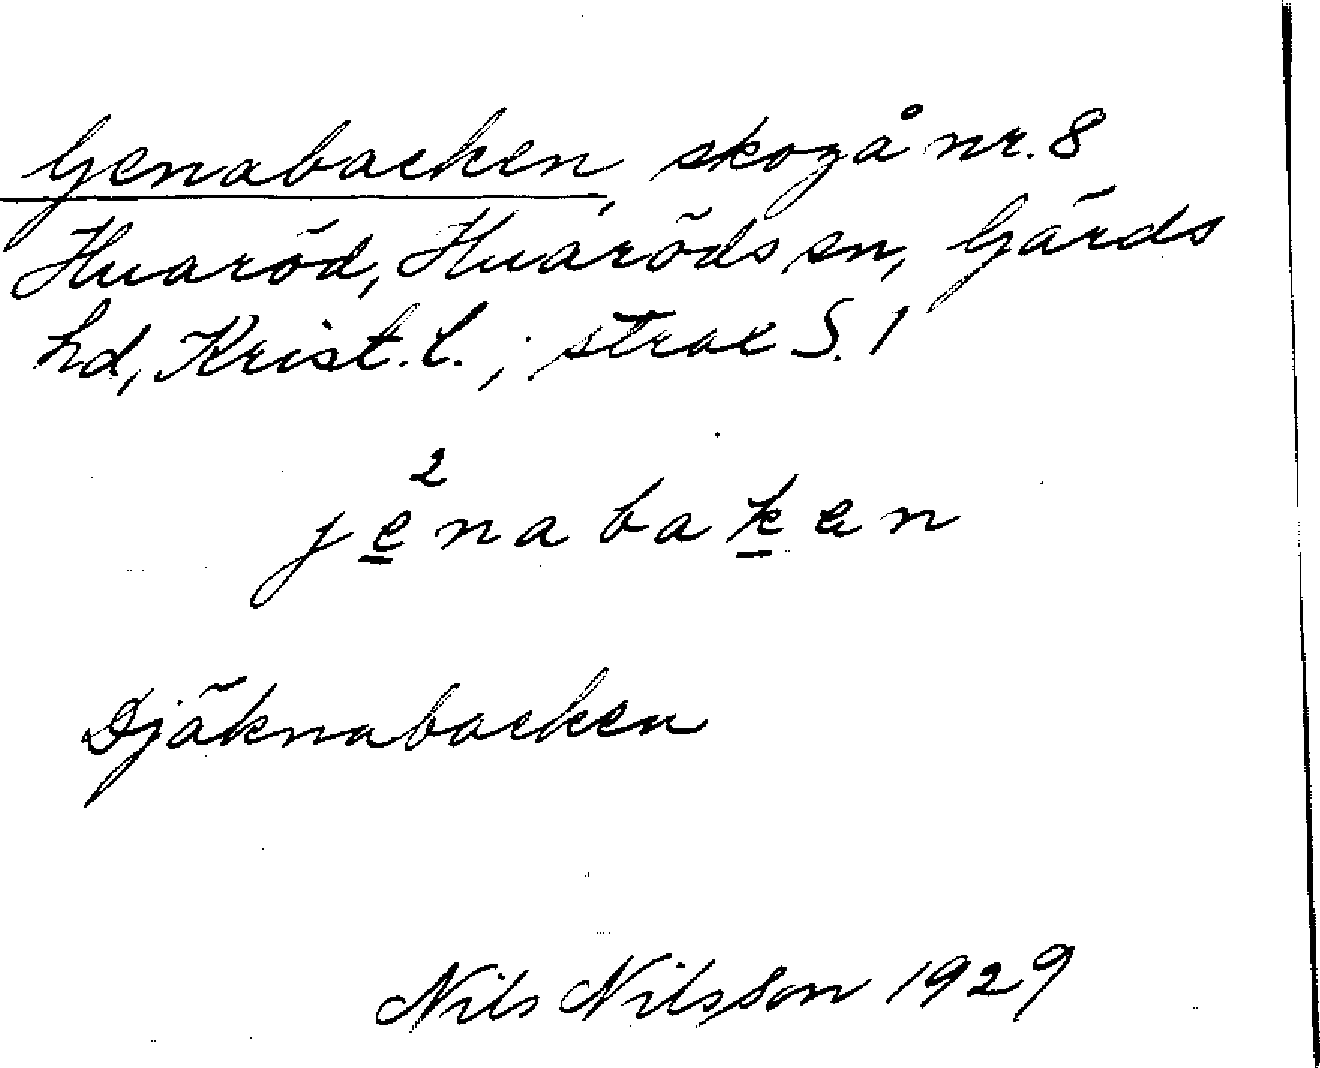 Genabacken, skog å nr. 8
Huaröd, Huaröds sn, Gärds
hd, Krist. l.; strax S. 1
2
jenabaken
Djäknabacken
Nils Nilsson 1929